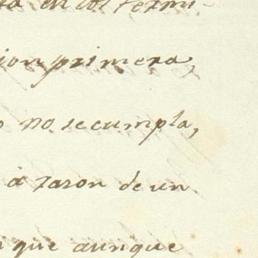 en el termi-
ion primera,
no se cumpla,
à razon de un
que aunque